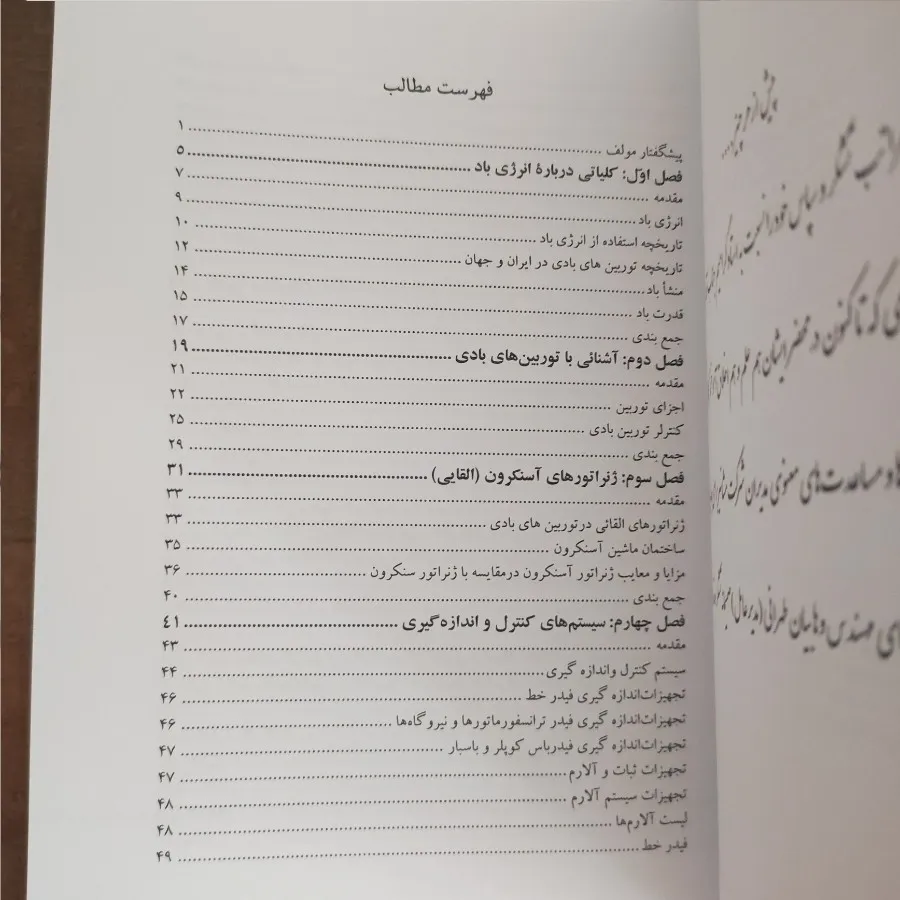 فهرست مطالب
پیشگفتار مولف ........ ۱
فصل اوّل: کلیاتی دربارۀ انرژی باد ........ ۵
مقدمه ........ ۷
انرژی باد ........ ۹
تاریخچه استفاده از انرژی باد ........ ۱۰
تاریخچه توربین های بادی در ایران و جهان ........ ۱۲
منشأ باد ........ ۱۴
قدرت باد ........ ۱۵
جمع بندی ........ ۱۷
فصل دوم: آشنائی با توربین‌های بادی ........ ۱۹
مقدمه ........ ۲۱
اجزای توربین ........ ۲۲
کنترلر توربین بادی ........ ۲۵
جمع بندی ........ ۲۹
فصل سوم: ژنراتورهای آسنکرون (القایی) ........ ۳۱
مقدمه ........ ۳۳
ژنراتورهای القائی درتوربین های بادی ........ ۳۳
ساختمان ماشین آسنکرون ........ ۳۵
مزایا و معایب ژنراتور آسنکرون درمقایسه با ژنراتور سنکرون ........ ۳۶
جمع بندی ........ ۴۰
فصل چهارم: سیستم‌های کنترل و اندازه‌گیری ........ ٤١
مقدمه ........ ۴۳
سیستم کنترل واندازه گیری ........ ۴۴
تجهیزات‌اندازه گیری فیدر خط ........ ۴۶
تجهیزات‌اندازه گیری فیدر ترانسفورماتورها و نیروگاه‌ها ........ ۴۶
تجهیزات‌اندازه گیری فیدرباس کوپلر و باسبار ........ ۴۷
تجهیزات ثبات و آلارم ........ ۴۷
تجهیزات سیستم آلارم ........ ۴۸
لیست آلارم‌ها ........ ۴۸
فیدر خط ........ ۴۹
پیش از هر چیز...
تشکر و سپاس خود را نسبت به
که تاکنون در محضر ایشان هم علم و هم اخلاق
و مساعدت‌های معنوی مدیران شرکت
مهندس وهابیان طهرانی (مدیرعامل)